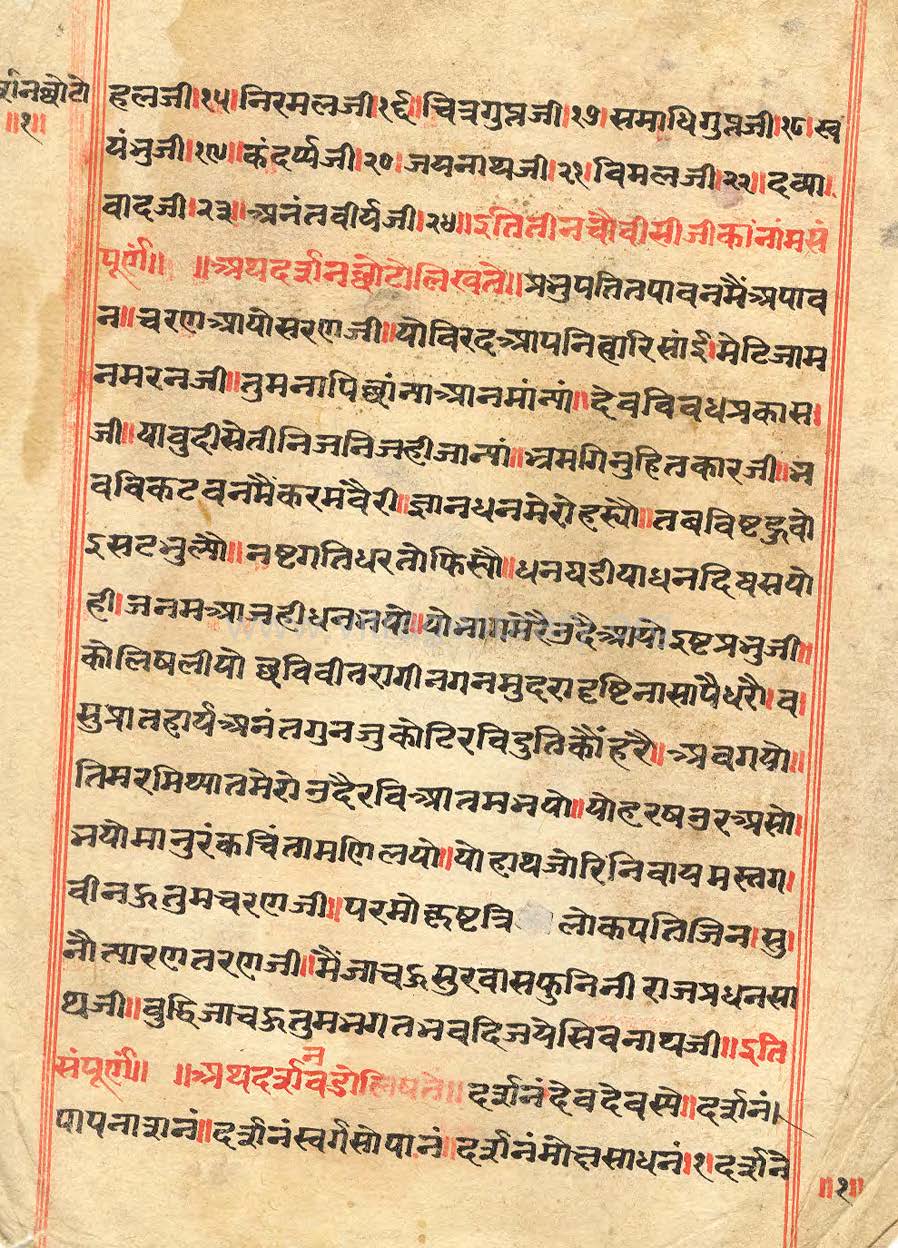 दर्शनछोटो
॥१॥
हलजी।१५।निरमलजी।१६॥चित्रगुप्तजी।१७।समाधिगुप्तजी।१८।स्व
यंभुजी।१९॥कंदर्प्पजी।२०।जयनाथजी।२१।विमलजी।२२॥दव्या
वादजी।२३॥अनंतवीर्यजी।२४॥इतितीनचौवीसीजीकांनांमसं
पूर्णं॥ ॥अथदर्शनछोटोलिखते॥प्रभुपतितपावनमैंअपाव
न॥चरणआयोसरणजी॥योविरदआपनिहारिसांई।मेटिजाम
नमरनजी॥तुमनापिछांन्याआनमांन्यां॥देवविवधप्रकास।
जी॥यावुदीसेतीनिजनिजहीजान्यां॥भ्रमगिनुहितकारजी॥भ
वविकटवनमैंकरमवैरी॥ज्ञानधनमेरोहस्यौ॥तबविष्टहुवो
इसटभुल्यौ॥नष्टगतिधरतोफिस्यौ॥धनघडीयाधनदिवसयो
ही।जनमआजहीधनभयो॥योभागमेरैनुदैआयोइष्टप्रभुजी॥
कोलिषलीयो छविवीतरागीनगनमुदरादृष्टिनासापैधरै॥व।
सुप्रातहार्यअनंतगुनजुकोटिरविदुतिकौंहरै॥अवगयो॥
तिमरमिथ्यातमेरोनुदैरविआतमभयो॥योहरषनुरअसो।
भयोमानुरंकचिंतामणिलयो॥योहाथजोरिनिवायमस्तग।
वीनऊतुमचरणजी॥परमोत्कृष्टत्रि लोकपतिजिन।सु।
नौत्यारणतरणजी॥मैंजाचऊसुरवासफुनिनी राजप्रधनसा
थजी॥वुद्धिजाचऊतुमभगतभवदिजयेसिवनाथजी॥इति
संपूर्णं॥ ॥अथदर्शनवडोलिषते॥दर्शनंदेवदेवस्ये॥दर्शनं।
पापनाशनं॥दर्शनंस्वर्गसोपानं॥दर्शनंमोक्षसाधनं।१।दर्शने
॥१॥